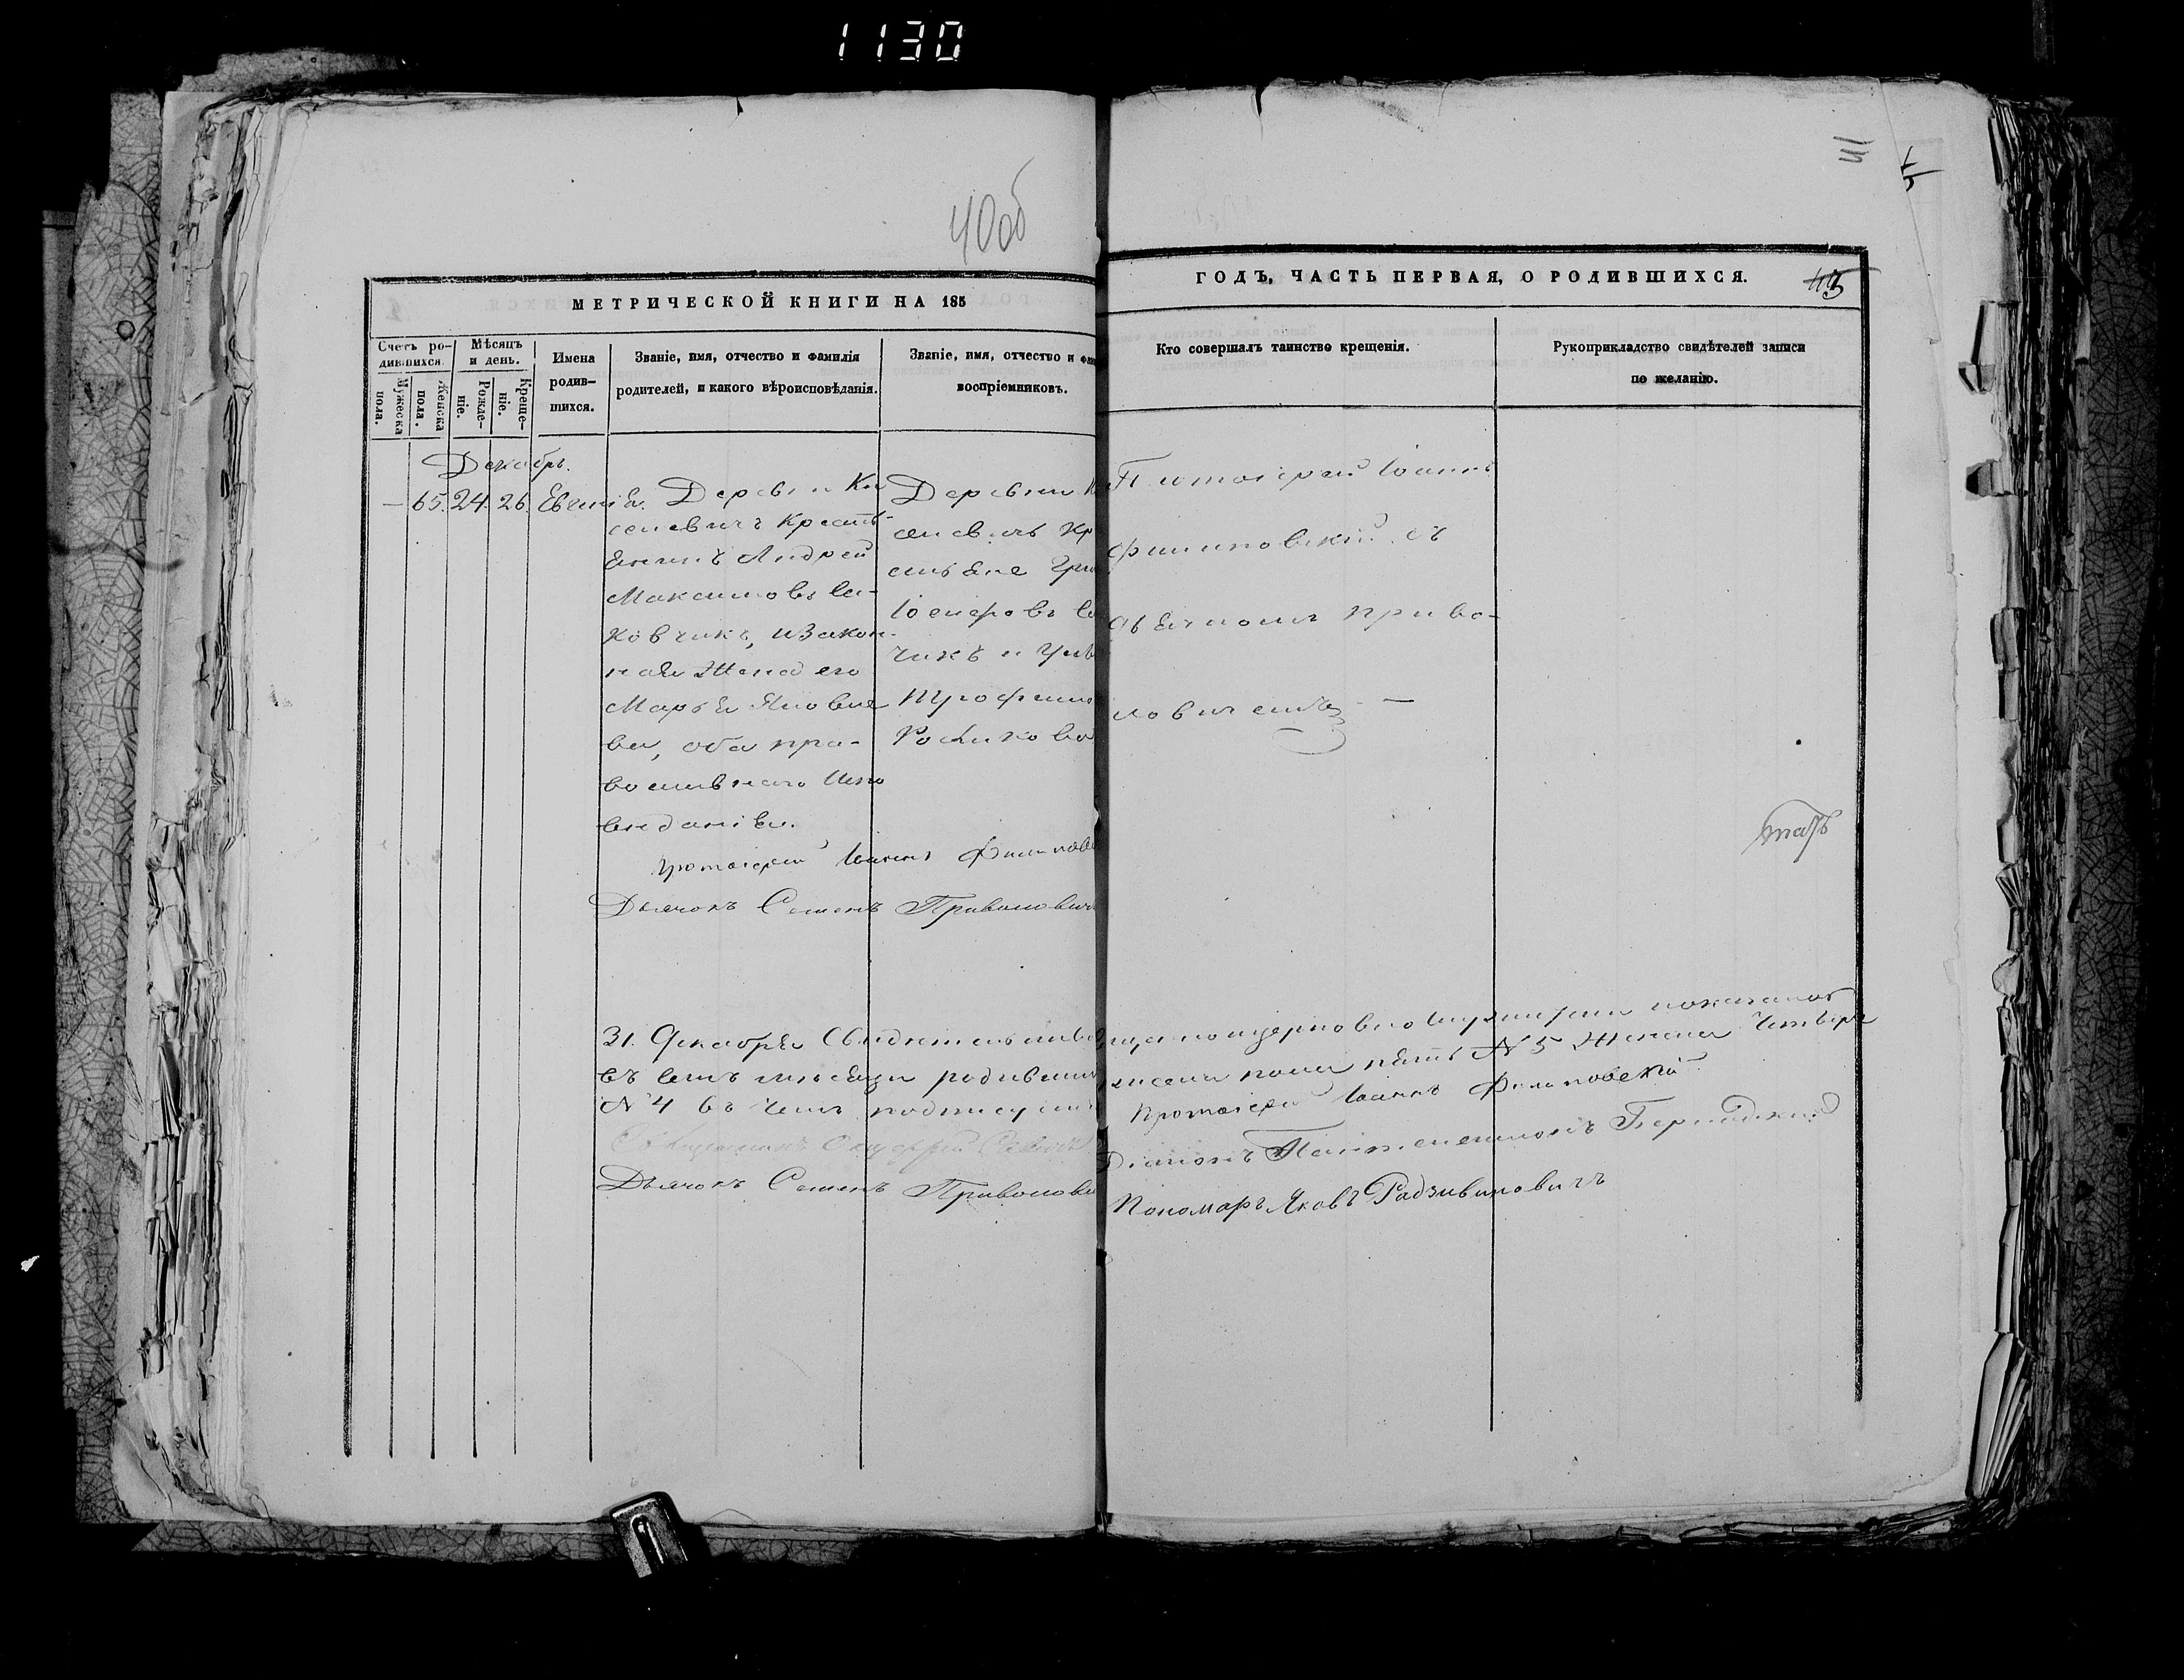 1130
40об
41
МЕТРИЧЕСКОЙ КНИГИ НА 185
ГОДЪ, ЧАСТЬ ПЕРВАЯ, О РОДИВШИХСЯ.
Счетъ ро-
дившихся.
Мужеска
пола.
Женска
пола.
Мѣсяцъ
и день.
Рожде-
ніе.
Креще-
ніе.
Имена
родив-
шихся.
Званіе, имя, отчество и фамилія
родителей, и какого вѣроисповѣданія.
Званіе, имя, отчество и фам
воспріемниковъ.
Кто совершалъ таинство крещенія.
Рукоприкладство свидѣтелей записи
по желанію.
Декабрь.
— 65. 24. 26. Евгенія.
Деревни Ки
селевичъ Кресть-
янинъ Андрей
Максимовъ
ковчикъ, и Закон-
ная Жена его
Марья
ва, оба пра-
вославнаго Испо
веданія.
Деревни К
селевичъ Кр
стьяне
Іосифовъ
чикъ и
Трофим
Протоіерей Іоаннъ
Филиповскій съ
дьячкомъ Приво-
ловичемъ —
Протоіерей Іоаннъ Филиповс
Дьячокъ Семенъ Приволович
31. Декабря Свидетельство
въ семъ месяце родивши
N 4 въ чемъ подпису
Дьячокъ Семенъ Приволови
пола пять N 5 Женска Четыре
Протоіерей Іоаннъ Филиповскій
Діаконъ
Пономарь Яковъ Радзивиловичъ